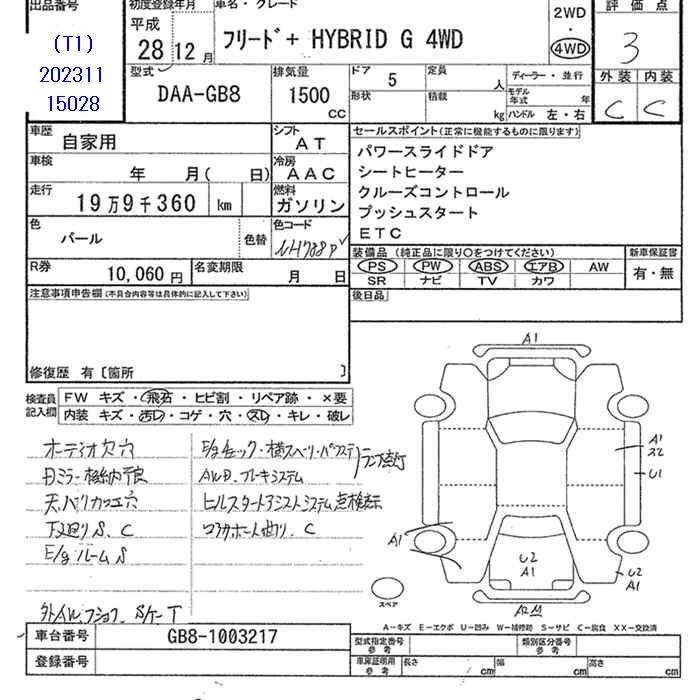 出品番号
(T1)
202311
15028
初度登録年月
平成
28 12 月
車名・グレード
フリード+ HYBRID G 4WD
2WD
・
4WD
評価点
3
型式
DAA-GB8
排気量
1500
CC
ドア 5
定員
人
形状
積載
kg
ディーラー・並行
モデル年式 年
ハンドル 左・右
外装 内装
C C
車歴
自家用
シフト
AT
車検
年 月( 日)
冷房
AAC
走行
19万9千360 km
燃料
ガソリン
色
パール
色替
色コード
NH788P
R券
10,060 円
名変期限
月 日
セールスポイント(正常に機能するものに限ります)
パワースライドドア
シートヒーター
クルーズコントロール
プッシュスタート
ETC
装備品 (純正品に限り○をつけてください)
新車保証書
PS PW ABS エアB AW
SR ナビ TV カワ
有・無
後日品
注意事項申告欄(不具合内容等は具体的に記入して下さい)
修復歴 有〔箇所 〕
検査員
記入欄
FW キズ・飛石・ヒビ割・リペア跡・×要
内装 キズ・汚レ・コゲ・穴・スレ・キレ・破レ
オーディオ欠穴
天、バリカツエ穴
下廻りS、C
E/gルームS
E/gチェック・横スベリ・パワステ
ランプ点灯
AWD、ブレーキシステム
ヒルスタートアシストシステム点検表示
コアサポート曲り、C
A1
A1
U1
A1
U2
A1
U2
A1
スペア
A-キズ E-エクボ U-凹み W-補修跡 S-サビ C-腐食 XX-交換済
車台番号 GB8-1003217
登録番号
型式指定番号
参考
類別区分番号
参考
車庫証明用
参考
長さ cm
幅 cm
高さ cm